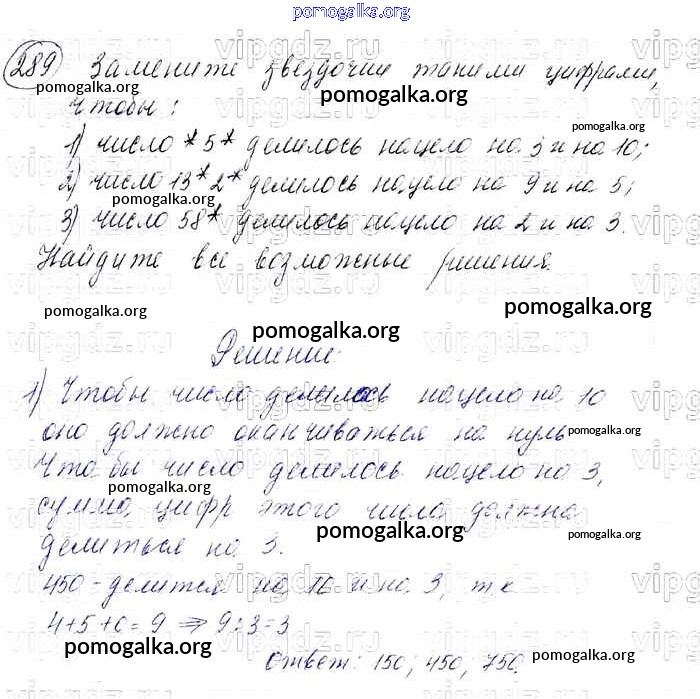 pomogalka.org
289 Замените звездочки такими цифрами,
pomogalka.org pomogalka.org
чтобы:
pomogalka.org
1) число *5* делилось нацело на 3 и на 10;
2) число 13*2* делилось нацело на 9 и на 5;
pomogalka.org
3) число 58* делилось нацело на 2 и на 3.
Найдите все возможные решения.
pomogalka.org pomogalka.org
pomogalka.org
Решение:
1) Чтобы число делилось нацело на 10
оно должно оканчиваться на нуль
pomogalka.org
Чтобы число делилось нацело на 3,
pomogalka.org
сумма цифр этого числа должна
pomogalka.org pomogalka.org
делиться на 3.
450 - делится на 10 и на 3, т к
4+5+0=9 ⇒ 9:3=3
pomogalka.org pomogalka.org
Ответ: 150; 450; 750.
vipgdz.ru